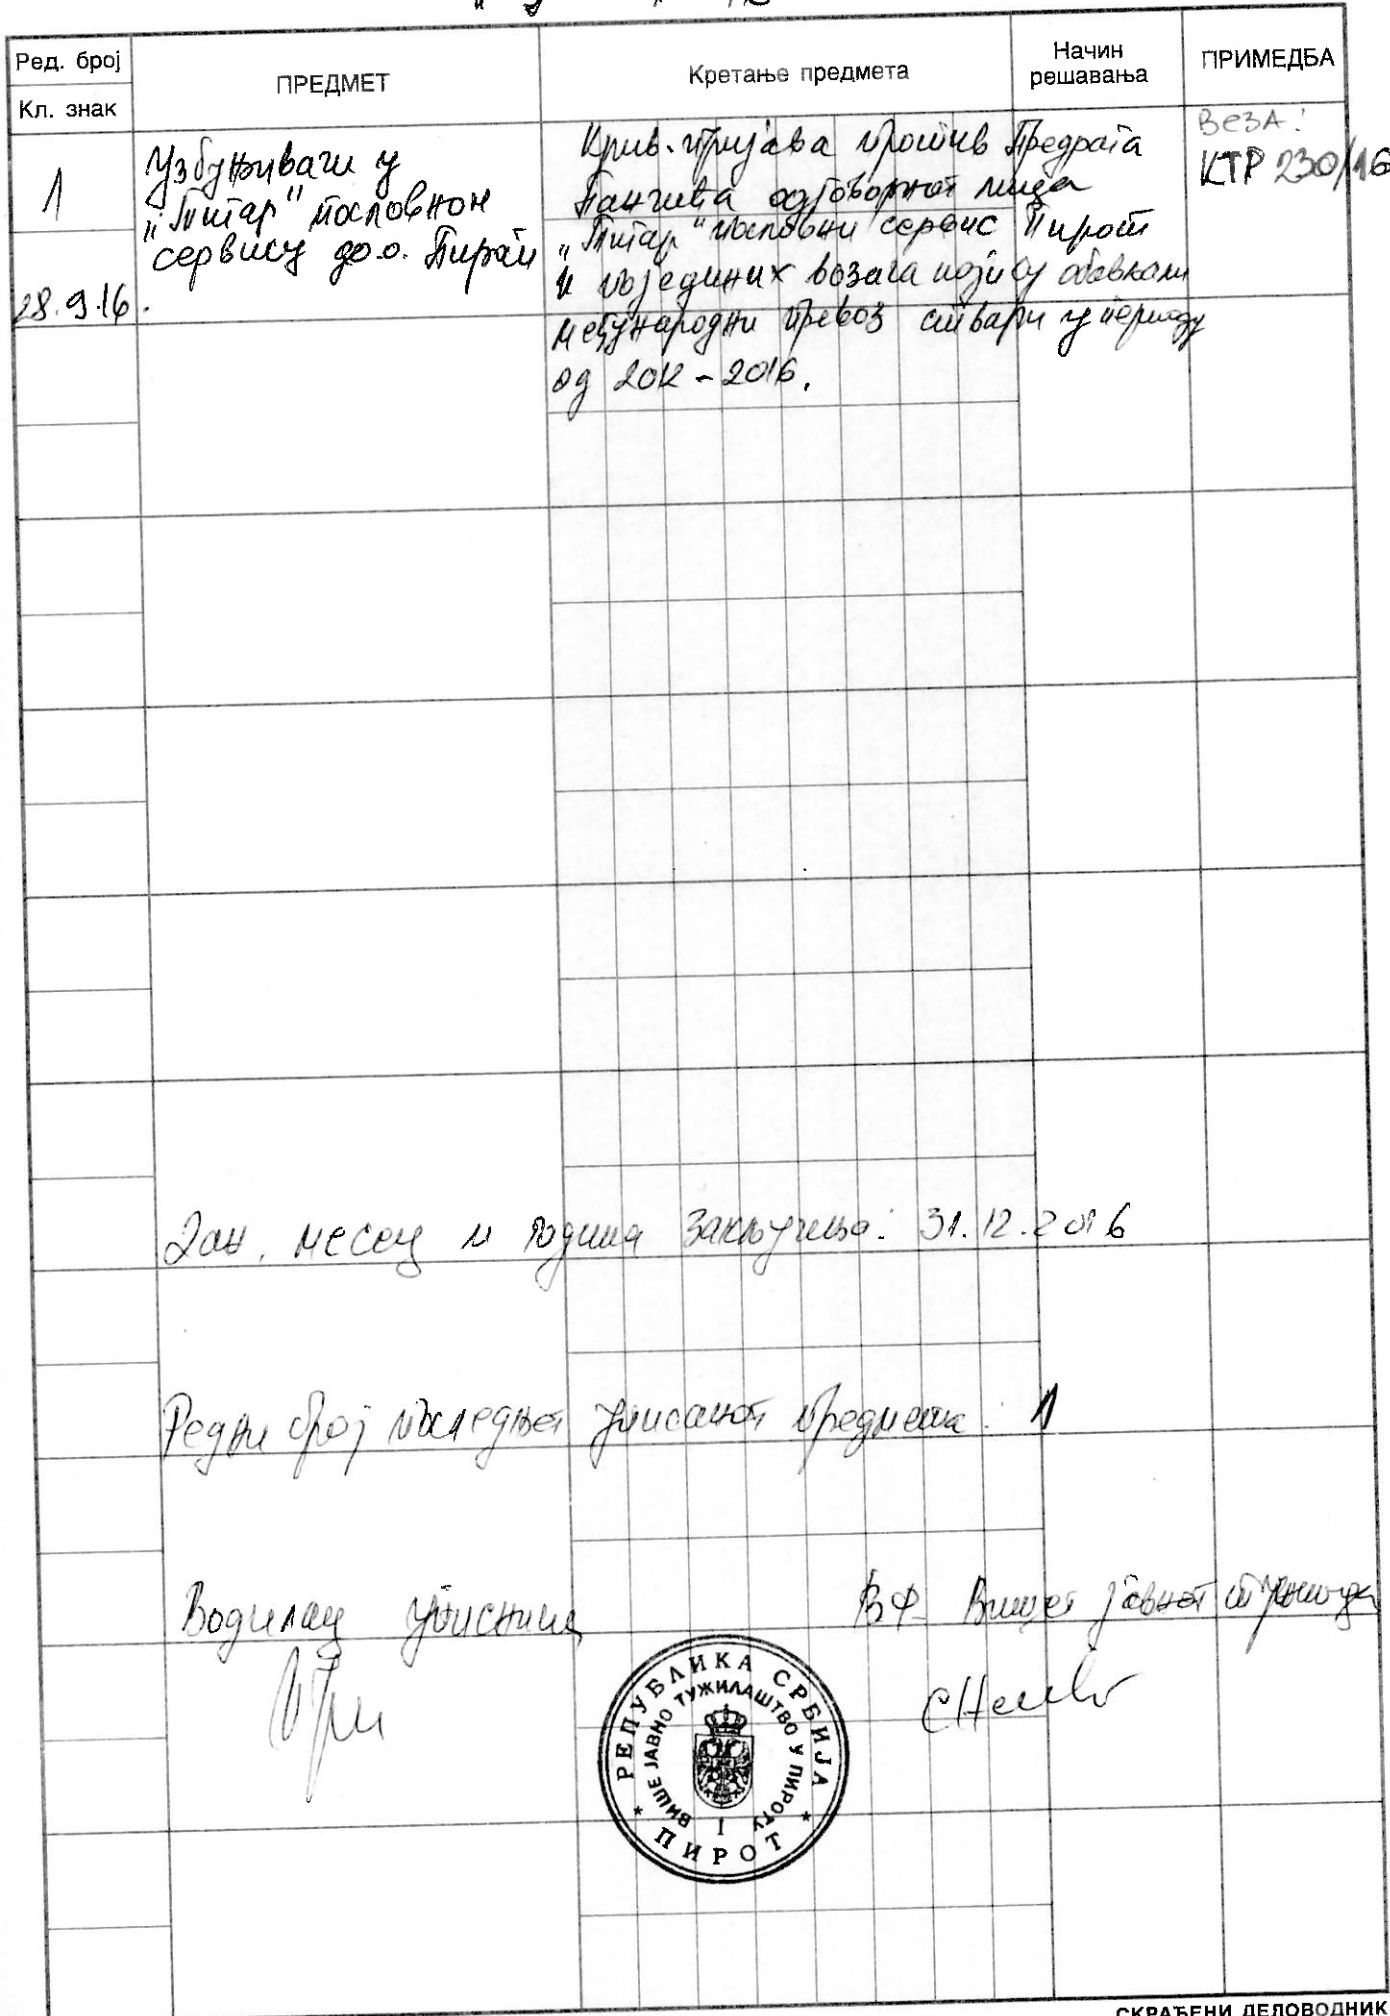 Ред. број
Кл. знак
ПРЕДМЕТ
Кретање предмета
Начин
решавања
ПРИМЕДБА
1
28.9.16.
Узбуњивачи у
„Тигар" пословном
сервису д.о.о. Пирот
Крив. пријава против Предрага
Панчића одговорног лица
„Тигар" пословни сервис Пирот
и појединих возача који су обављали
међународни превоз ствари у периоду
од 2012-2016.
Веза:
КТР 230/16
Дан, месец и година закључења: 31.12.2016
Редни број последњег уписаног предмета: 1
Водилац уписника
ВФ Вишег јавног тужиоца
РЕПУБЛИКА СРБИЈА
ВИШЕ ЈАВНО ТУЖИЛАШТВО У ПИРОТУ
I
ПИРОТ
СКРАЋЕНИ ДЕЛОВОДНИК